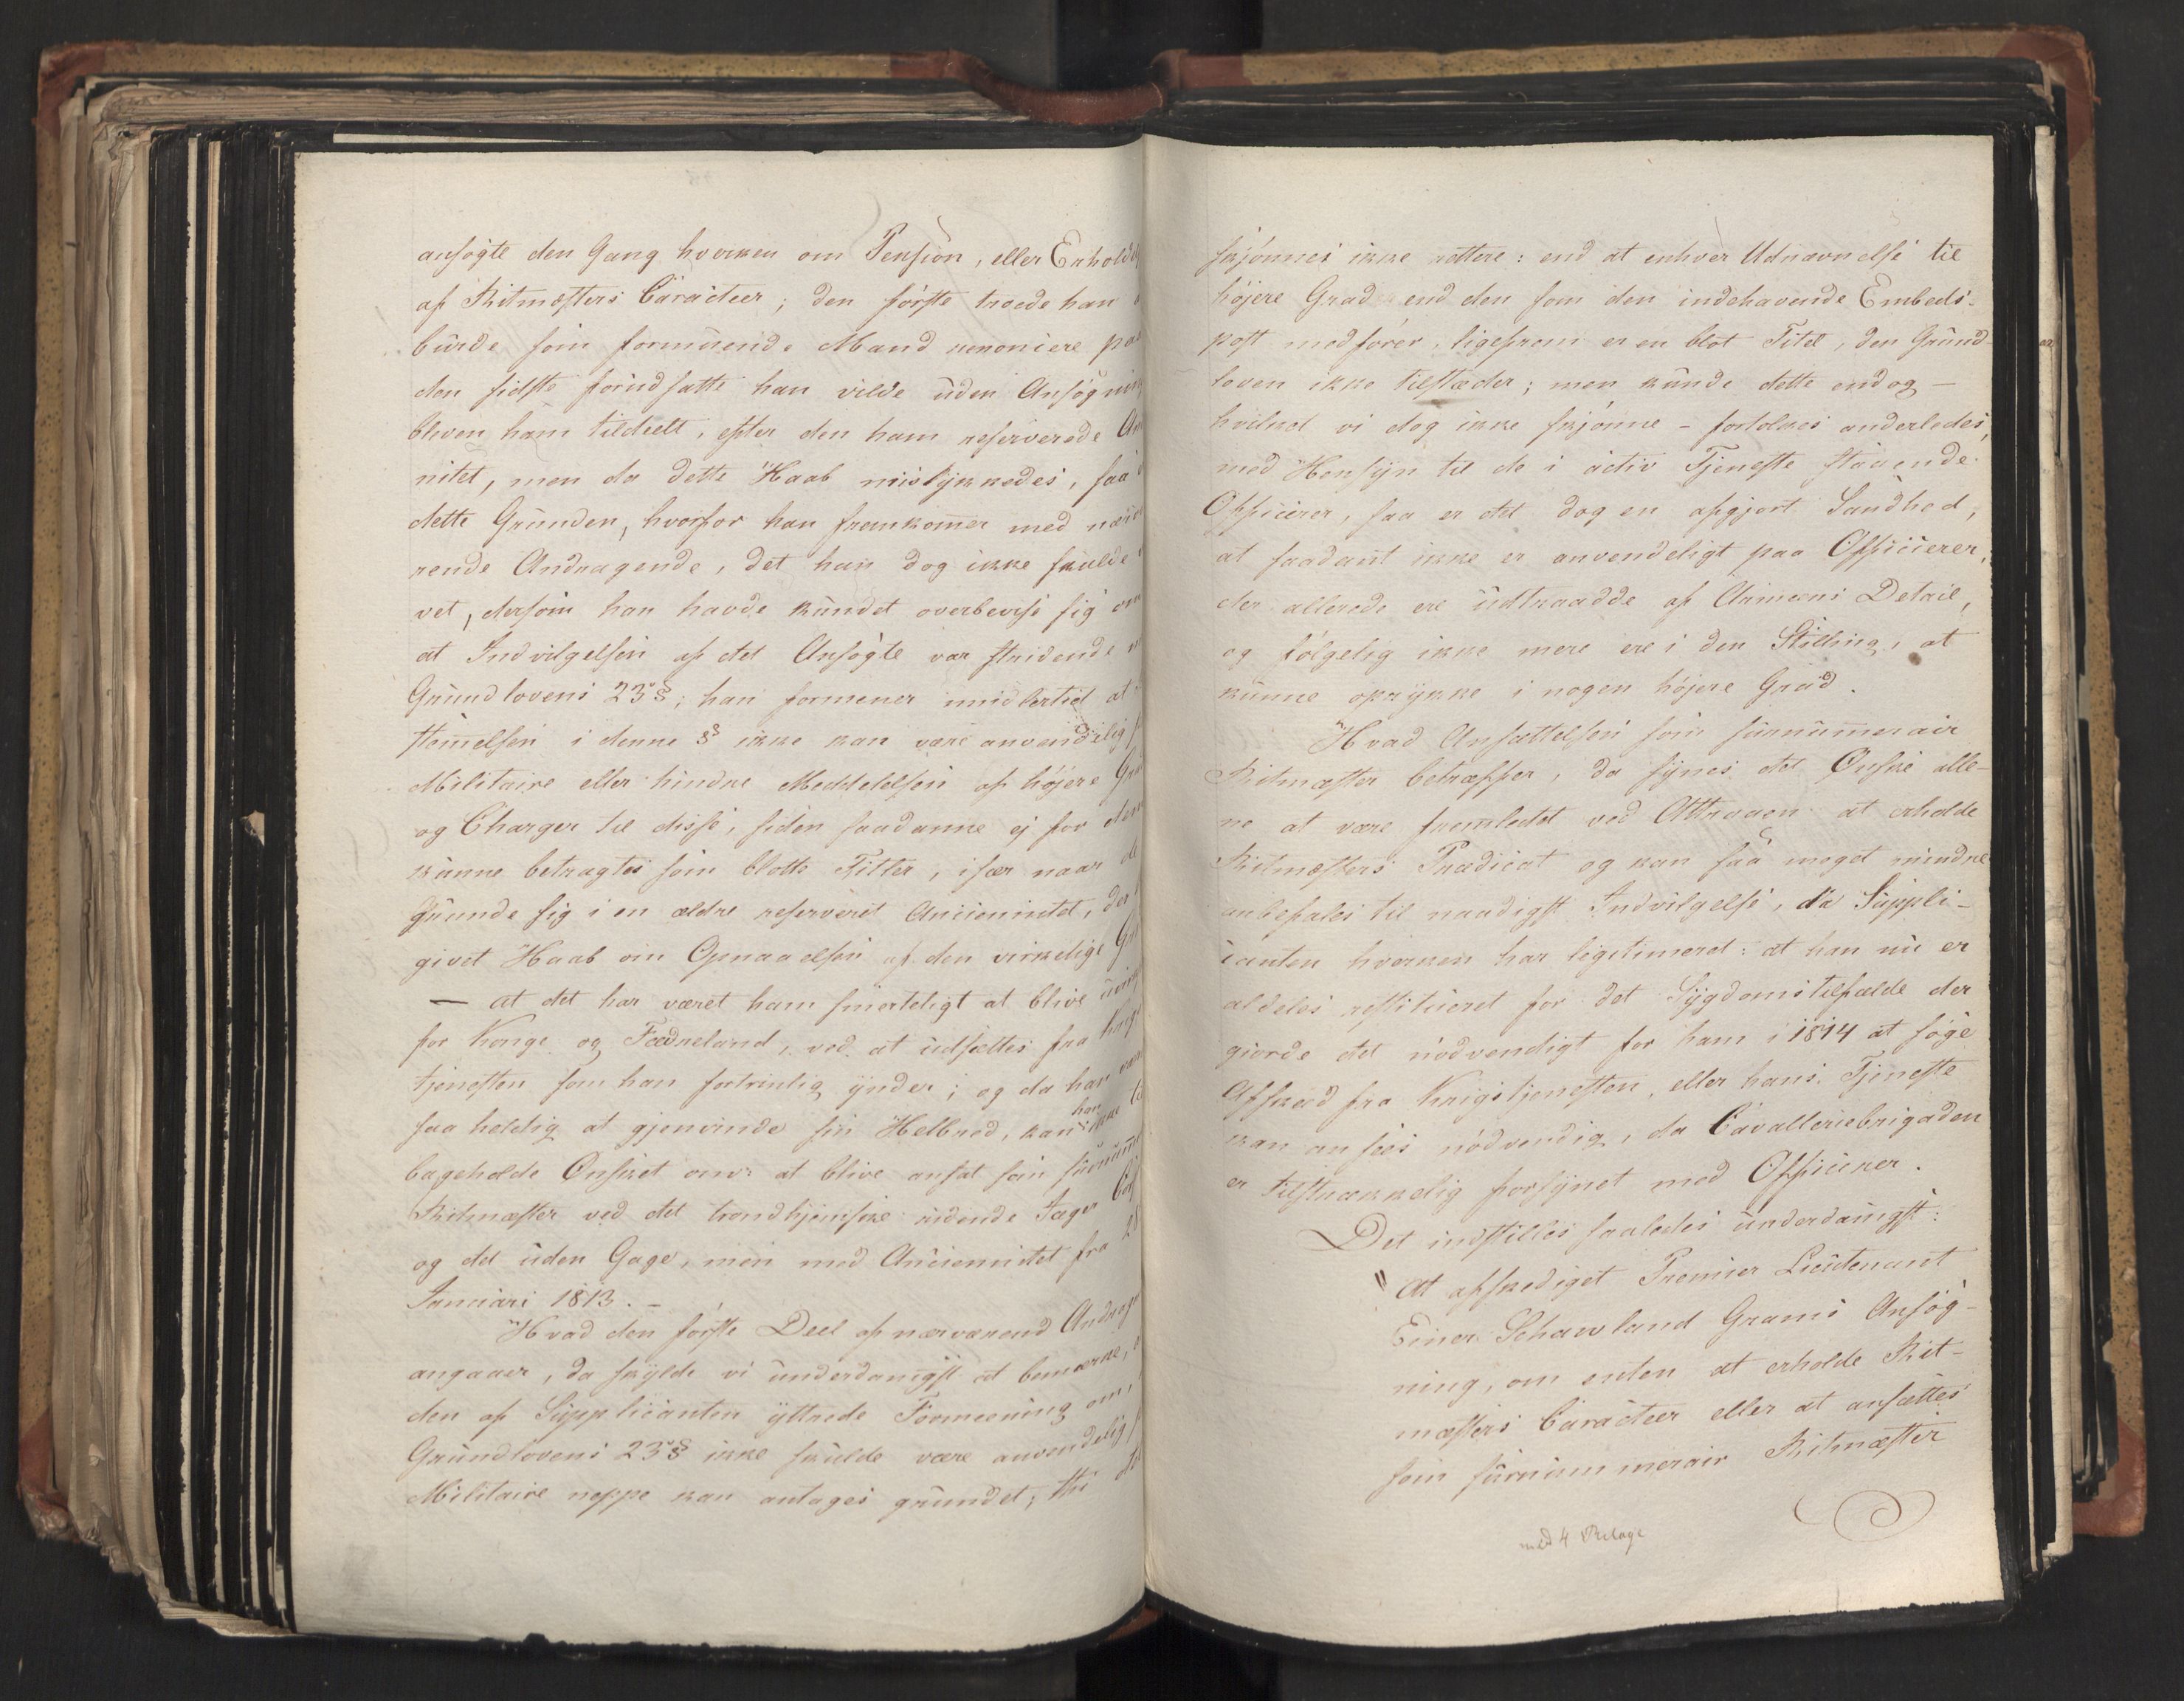 ansøgte den Gang hverken om Pension, eller Erholdels
af Ritmæsters Caracteer; den første troede han
burde som formuende Mand renoncere paa
den sidste forudsatte han vilde uden Ansøgning
bleven ham tildeelt, efter den ham reserverede An
nitet, men da dette Haab mislykkedes, saa
dette Grunden, hvorfor han fremkommer med nærvæ
rende Andragende, det han dog ikke skulde
vet, dersom han havde kundet overbevise sig om
at Indvilgelsen af det Ansøgte var stridende
Grundlovens 23 §; han formener imidlertid at
stemmelsen i denne § ikke kan være anvendelig
Militaire eller hindre Meddelelsen af højere Gra
og Charger til disse, siden saadanne ej for dem
kunne betragtes som blotte Titler, især naar de
grunde sig i en ældre reserveret Anciennitet, der
givet Haab om Opnaaelsen af den virkelige Gra
— at det har været ham smerteligt at blive uvirk
for Konge og Fædreland, ved at udsættes fra Krigs
tjenesten som han fortrinlig ynder; og da han var
saa heldig at gjenvinde sin Helbred, kan han ikke
bageholde Ønsket om: at blive ansat som surnumm
Ritmæster ved det trondhjemske ridende Jæger Cor
og det uden Gage, men med Anciennitet fra 28
Januari 1813. –
Hvad den første Deel af nærværend Andrage
angaaer, da skylde vi underdanigst at bemærke,
den af Supplicanten yttrede Formeening om,
Grundlovens 23 § ikke skulde være anvendelig
Militaire neppe kan antages grundet; thi det
skjønnes ikke rettere: end at enhver Udnævnelse til
højere Grad end den som den indehavende Embeds-
post medfører, ligefrem er en blot Titel, den Grund-
loven ikke tilstæder; men kunde dette endog —
hvilket vi dog ikke skjønne – fortolkes anderledes,
med Hensyn til de i activ Tjeneste staaende
Officierer, saa er det dog en afgjort Sandhed,
at saadant ikke er anvendeligt paa Officierer,
der allerede ere udtraadde af Armeens Detail,
og følgelig ikke mere ere i den Stilling, at
kunne oprykke i nogen højere Grad.
Hvad Ansættelsen som surnummerair
Ritmæster betræffer, da synes det Ønske alle-
ne at være fremledet ved Attraaen at erholde
Ritmæsters Prædicat og kan saa meget mindre
anbefales til naadigst Indvilgelse, da Suppli-
canten hverken har legitimeret: at han nu er
aldeles restitueret for det Sygdomstilfælde der
giorde det nødvendigt for ham i 1814 at søge
Afskeed fra Krigstjenesten, eller hans Tjeneste
kan ansees nødvendig, da Cavalleriebrigaden
er tilstrækkelig forsynet med Officierer.
Det indstilles saaledes underdanigst:
"At afskediget Premier Lieutenant
Einer Schavland Grams Ansøg-
ning, om enten at erholde Rit-
mæsters Caracteer eller at ansættes
som surnummerair Ritmæster
med 4 Bilage